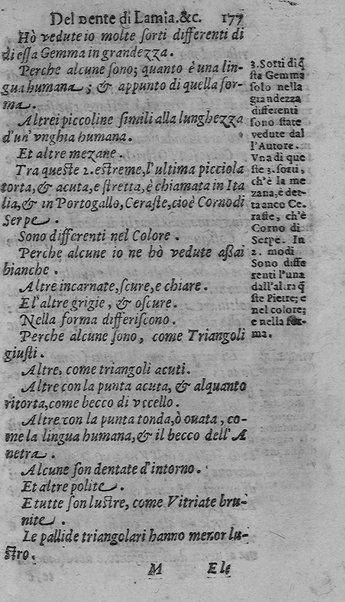 Del vente di Lamia.&c. 177
Hò vedute io molte sorti differenti di
di essa Gemma in grandezza.
Perche alcune sono; quanto è vna lin-
gua humana; & appunto di quella for-
ma.
Altrei piccoline simili alla lunghezza
d'un'vnghia humana.
Et altre mezane.
Tra queste 2. estreme, l'ultima picciola
torta, & acuta, e stretta, è chiamata in Ita
lia, & in Portogallo, Ceraste, cioè Corno di
Serpe.
Sono differenti nel Colore.
Perche alcune io ne hò vedute aßai
bianche.
Altre incarnate, scure, e chiare.
E l'altre grigie, & oscure.
Nella forma differiscono.
Perche alcune sono, come Triangoli
giusti.
Altre, come triangoli acuti.
Altre con la punta acuta, & alquanto
ritorta, come becco di vccello.
Altre con la punta tonda, ò ouata, co-
me la lingua humana, & il becco dell'A
netra.
Alcune son dentate d'intorno.
Et altre polite.
E tutte son lustre, come Vitriate bru-
nite.
Le pallide triangolari hanno menor lu-
stro.
M Ele
3. Sotti di q̃
sta Gemma
solo nella
grandezza
differenti
sono state
vedute dal
l'Autore.
Vna di que
ste 3. sorti,
ch'è la me
zana, è det-
ta anco Ce-
raste, ch'è
Corno di
Serpe. In
2. modi
Sono diffe
renti l'una
dall'altra q̃
ste Pietre; e
nel colore;
e nella for-
ma.